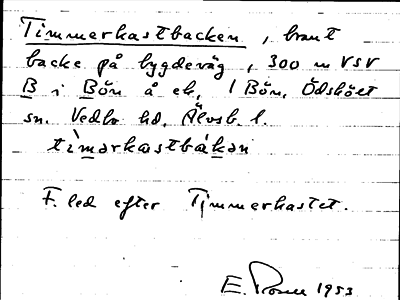 Timmerkastbacken, brant
backe på bygdeväg, 300 m VSV
B i Bön å ek, 1 Bön, Ödskölt
sn. Vedbo hd, Älvsb. l.
timərkastbakən
F. led efter Timmerkastet.
E. 1953